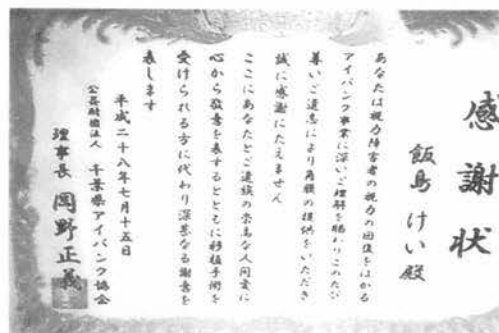 感謝状
飯島 けい殿
あなたは視力障害者の視力の回復をはかる
アイバンク事業に深いご理解を賜わりこのたび
尊いご遺志により角膜の提供をいただき
誠に感謝にたえません
ここにあなたとご遺族の崇高な人間愛に
心から敬意を表するとともに移植手術を
受けられる方に代わり深甚なる謝意を
表します
平成二十八年七月十五日
公益財団法人 千葉県アイバンク協会
理事長 岡野正義